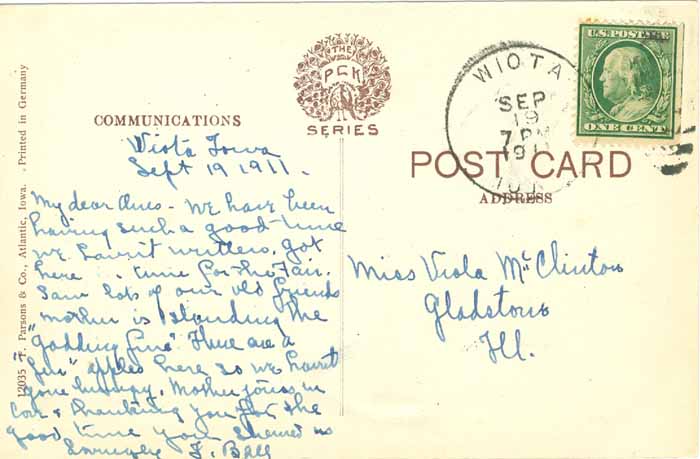 THE
PCK
SERIES
COMMUNICATIONS
Wiota Iowa
Sept 19 1911.
WIOTA
SEP
19
7 PM
191
IOWA
U.S. POSTAGE
ONE CENT
POST CARD
ADDRESS
12035 F. Parsons & Co., Atlantic, Iowa. Printed in Germany
My dear Ones - We have been
having such a good time
we havn't written. got
here in time for the Fair.
Saw lots of our old friends
Mother is standing the
"gadding fine" There are a
"few" apples here so we havn't
gone hungry. Mother joins in
love & thanking you for the
good time you showed us
F. Ball
Miss Viola McClinton
Gladstone
Ill.